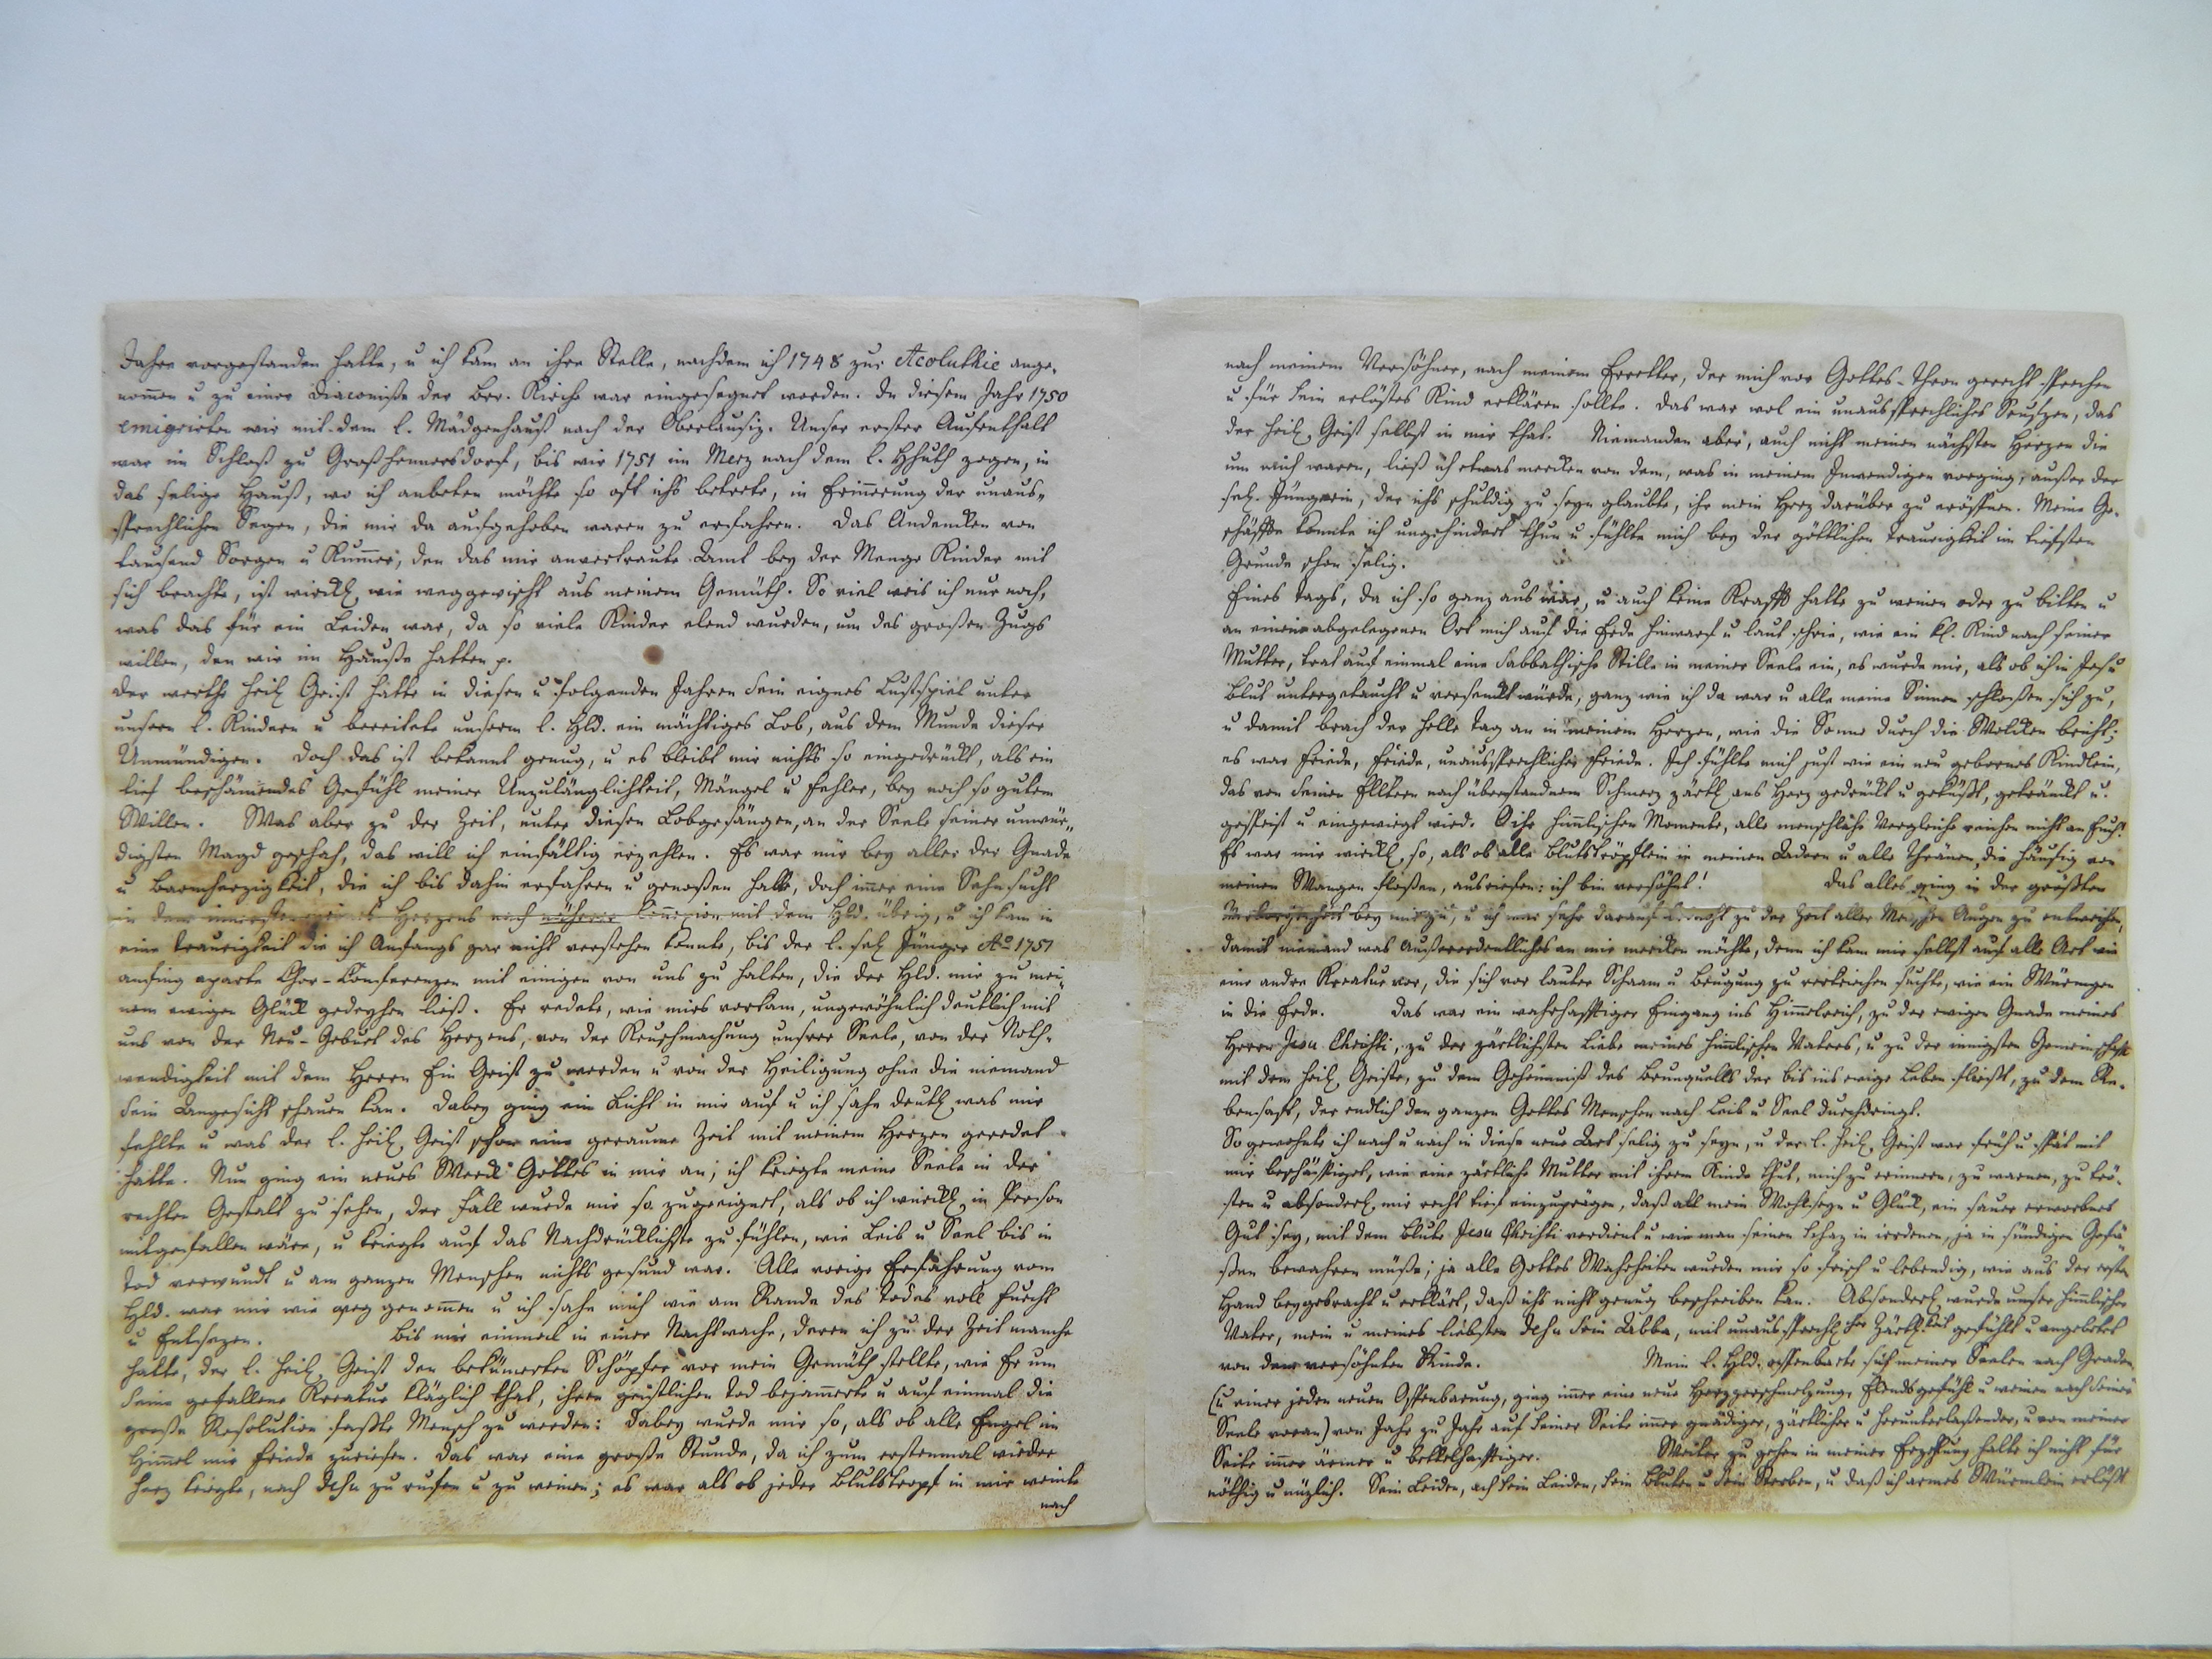 Jahre vorgestanden hatte, u ich kam an ihre Stelle, nachdem ich 1748 zur Acoluthie ange-
nom̅en u zu einer Diaconiße der Br. Kirche war eingesegnet worden. In diesem Jahr 1750
emigrirten wir mit dem l. Mädgenhauß nach der Oberlausiz. Unser erster Aufenthalt
war im Schloß zu Großhennersdorf, bis wir 1751 im Merz nach dem l. Hhuth zogen, in
das selige Hauß, wo ich anbeten möchte so oft ichs betrete, in Erin̅erung der unaus-
sprechlichen Segen, die mir da aufgehoben waren zu erfahren. Das Andencken von
tausend Sorgen u Kum̅er, den das mir anvertraute Amt bey der Menge Kinder mit
sich brachte, ist würkl. wie weggewischt aus meinem Gemüth. So viel weis ich nur noch,
was das für ein Leiden war, da so viele Kinder elend wurden, um des großen Zugs
willen, den wir im Hauße hatten p.
Der werthe heil. Geist hatte in diesen u folgenden Jahren sein eignes Lustspiel unter
unsern l. Kindern u bereitete unserm l. Hld. ein mächtiges Lob, aus dem Munde dieser
Unmündigen. Doch das ist bekant genug, u es bleibt mir nichts so eingedrückt, als ein
tief beschämendes Gefühl meiner Unzulänglichkeit, Mängel u Fehler, bey noch so gutem
Willen. Was aber zu der Zeit, unter diesen Lobgesängen, an der Seele seiner unwür-
digsten Magd geschah, das will ich einfältig erzehlen. Es war mir bey aller der Gnade
u Barmherzigkeit, die ich bis dahin erfahren u genoßen hatte, doch im̅er eine Sehnsucht
in dem innersten meines Herzens nach näherer Connexion mit dem Hld. übrig, u ich kam in
eine Traurigkeit die ich Anfangs gar nicht verstehen konte, bis der l. sel. Jünger Ao 1751
anfing aparte Chor-Conferenzen mit einigen von uns zu halten, die der Hld. mir zu mei-
nem ewigen Glück gedeyhen ließ. Er redete, wie mirs vorkam, ungewöhnlich deutlich mit
uns von der Neu-Geburt des Herzens, von der Keuschmachung unsrer Seele, von der Noth-
wendigkeit mit dem Herrn Ein Geist zu werden u von der Heiligung ohne die niemand
Sein Angesicht schauen kan. Dabey ging ein Licht in mir auf u ich sahe deutl. was mir
fehlte u was der l. heil. Geist schon eine geraume Zeit mit meinem Herzen geredet
hatte. Nun ging ein neues Werck Gottes in mir an; ich kriegte meine Seele in der
rechten Gestalt zu sehen, der Fall wurde mir so zugeeignet, als ob ich würckl. in Person
mitgefallen wäre, u kriegte auf das Nachdrücklichste zu fühlen, wie Leib u Seel bis in
Tod verwundt u am ganzen Menschen nichts gesund war. Alle vorige Erfahrung vom
Hld. war mir wie weg genom̅en u ich sahe mich wie am Rande des Todes voll Furcht
u Entsezen. Bis mir einmal in einer Nachtwache, deren ich zu der Zeit manche
hatte, der l. heil. Geist den beküm̅erten Schöpfer vor mein Gemüth stellte, wie Er um
seine gefallene Kreatur kläglich that, ihren geistlichen Tod bejam̅erte u auf einmal die
große Resolution faßte Mensch zu werden: Dabey wurde mir so, als ob alle Engel im
Him̅el mir Friede zuriefen. Das war eine große Stunde, da ich zum erstenmal wieder
Herz kriegte, nach Ihm zu rufen u zu weinen; es war als ob jeder Blutstropf in mir weinte
nach
nach meinem Versöhner, nach meinem Erretter, der mich vor Gottes-Thron gerecht sprechen
u für sein erlöstes Kind erklären sollte. Das war wol ein unaussprechliches Seufzen, das
der heil. Geist selbst in mir that. Niemanden aber, auch nicht meinen nächsten Herzen die
um mich waren, ließ ich etwas mercken von dem, was in meinem Inwendigen vorging, außer der
sel. Jüngerin, der ichs schuldig zu seyn glaubte, ihr mein Herz darüber zu eröffnen. Meine Ge-
schäffte konte ich ungehindert thun u fühlte mich bey der göttlichen Traurigkeit im tiefsten
Grunde schon selig.
Eines Tags, da ich so ganz aus war, u auch keine Krafft hatte zu weinen oder zu bitten u
an einem abgelegenen Ort mich auf die Erde hinwarf u laut schrie, wie ein kl. Kind nach seiner
Mutter, trat auf einmal eine sabbathische Stille in meiner Seele ein, es wurde mir, als ob ich in Jesu
Blut untergetaucht u versenckt würde, ganz wie ich da war u alle meine Sinnen schloßen sich zu,
u damit brach der helle Tag an in meinem Herzen, wie die Sonne durch die Wolcken bricht;
es war Friede, Friede, unaussprechlicher Friede. Ich fühlte mich just wie ein neu gebornes Kindlein,
das von seinen Eltern nach überstandnem Schmerz zärtl. ans Herz gedrückt u geküßt, getränckt u
gespeist u eingewiegt wird. O ihr him̅lischen Momente, alle menschliche Vergleiche reichen nicht an Euch!
Es war mir würckl. so, als ob alle Blutströpflein in meinen Adern u alle Thränen, die häufig von
meinen Wangen floßen, ausriefen: ich bin versöhnt! Das alles ging in der größten
Verborgenheit bey mir zu, u ich war sehr darauf bedacht zu der Zeit aller Menschen Augen zu entweichen,
damit niemand was außerordentliches an mir mercken möchte, denn ich kam mir selbst auf alle Art wie
eine andre Kreatur vor, die sich vor lauter Schaam u Beugung zu verkriechen suchte, wie ein Würmgen
in die Erde. Das war ein wahrhafftiger Eingang ins Him̅elreich, zu der ewigen Gnade meines
Herrn Jesu Christi, zu der zärtlichsten Liebe meines him̅lischen Vaters, u zu der innigsten Gemeinschaft
mit dem heil. Geiste, zu dem Geheimniß des Brunquells der bis ins ewige Leben fließt, zu dem Re-
bensaft, der endlich den ganzen Gottes Menschen nach Leib u Seel durchdringt.
So gewohnte ich nach u nach in diese neue Art selig zu seyn, u der l. heil. Geist war früh u spät mit
mir beschäfftiget, wie eine zärtliche Mutter mit ihrem Kinde thut, mich zu erinnern, zu warnen, zu trö-
sten u absonderl. mir recht tief einzuprägen, daß all mein Wohlseyn u Glück, ein sauer erworbnes
Gut sey, mit dem Blute Jesu Christi verdient u wie man seinen Schaz in irrdenen, ja in sündigen Gefä-
ßen bewahren müße; ja alle Gottes Wahrheiten wurden mir so frisch u lebendig, wie aus der ersten
Hand beygebracht u erklärt, daß ichs nicht genug beschreiben kan. Absonderl. wurde unser him̅lischer
Vater, mein u meines liebsten Jesu sein Abba, mit unaussprechl.er Zärtl.keit gefühlt u angebetet
von dem versöhnten Kinde. Mein l. Hld. offenbarte sich meiner Seelen nach Graden,
(u einer jeden neuen Offenbarung, ging im̅er eine neue Herzzerschmelzung, Elendsgefühl u weinen nach Seiner
Seele voran) von Jahr zu Jahr auf Seiner Seite im̅er gnädiger, zärtlicher u herunterlaßender, u von meiner
Seite im̅er ärmer u bettelhafftiger. Weiter zu gehen in meiner Erzehlung halte ich nicht für
nöthig u nüzlich. Sein Leiden, ach sein Leiden, sein Bluten u sein Sterben, u daß ich armes Würmlein erlößt